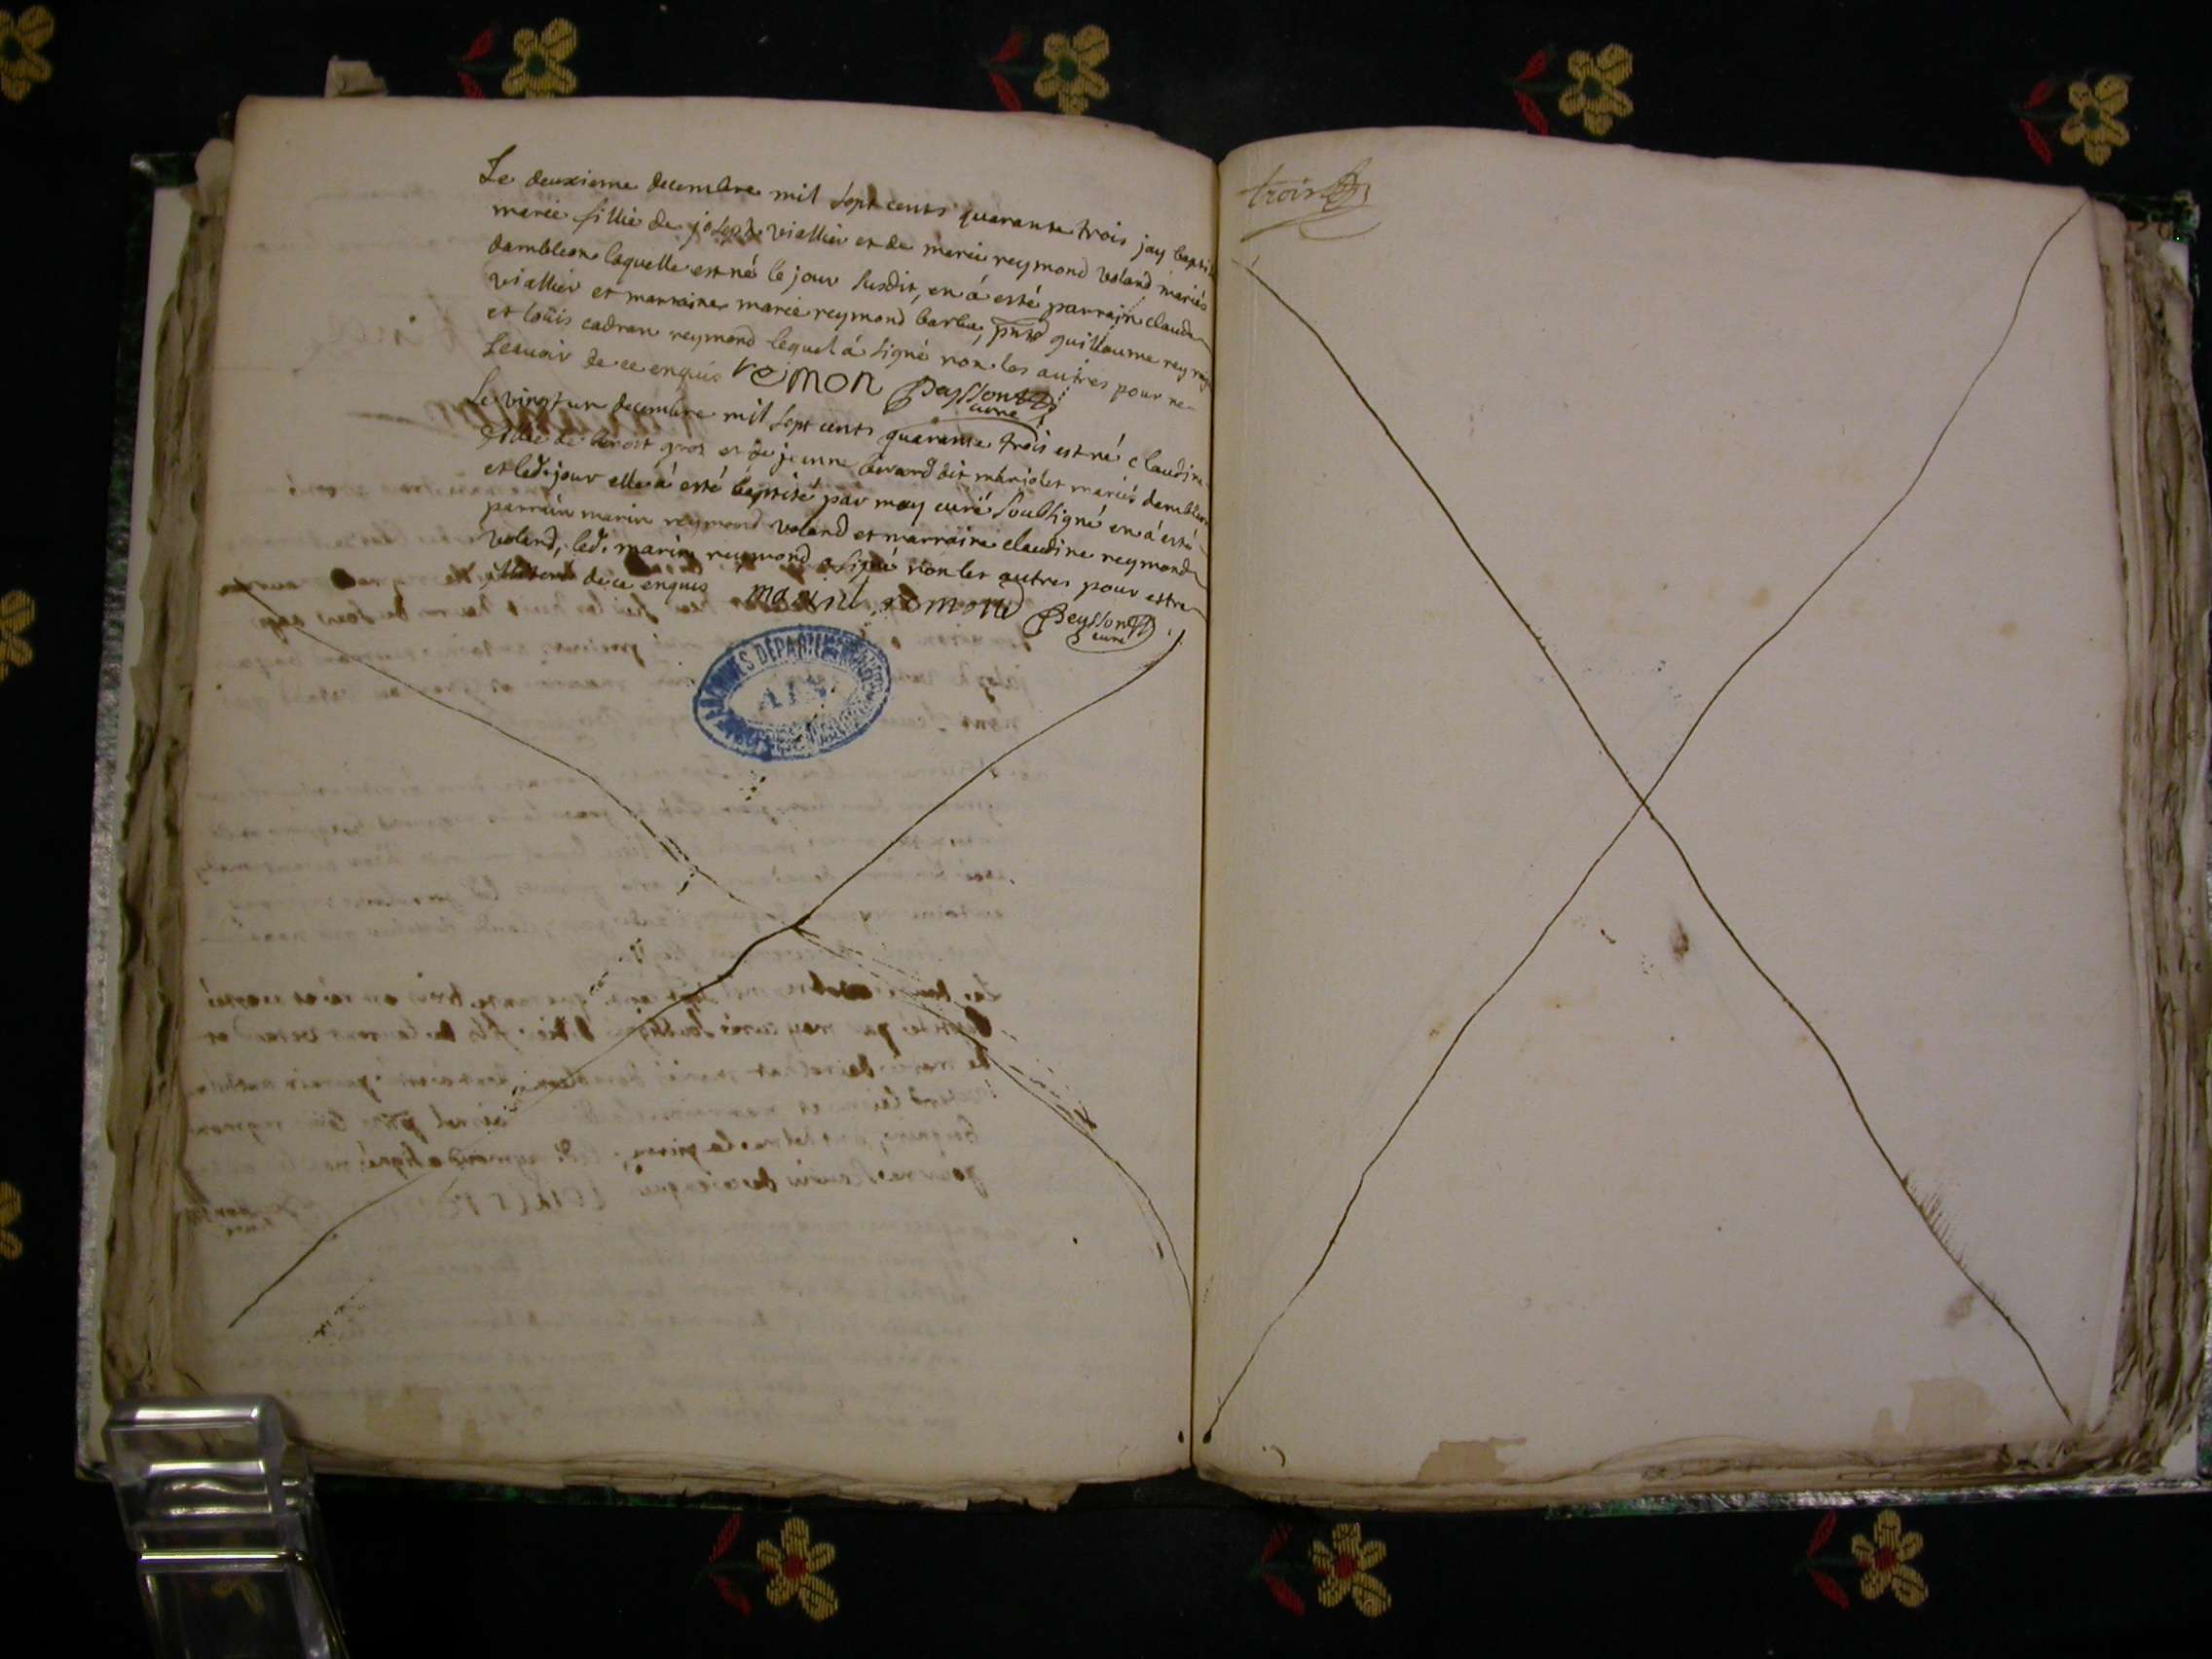 Le deuxieme decembre mil sept cents quarante trois jay baptis
marie fillie de joseph viallier et de marie reymond voland mariés
dambleon laquelle est né le jour susdit, en á esté parrain claude
viallier et marraine marie reymond barbu, pnts guillaume reymond
et loüis cadran reymond lequel á signé non les autres pour ne
scauoir de ce enquis remon Peysson
curé
Le vingt un decembre mil sept cents quarante trois est né claudine
fillie de benoit gros et de jeanne berard dit mariolet mariés dambleon
et led. jour elle á esté baptisé par moy curé soubsigné en á esté
parrain marin reymond voland et marraine claudine reymond
voland, led. marin reymond a signé non les autres pour estre
illiteré de ce enquis marin remond Peysson
curé
ARCHIVES DÉPARTEMENTALES
AIN
trois